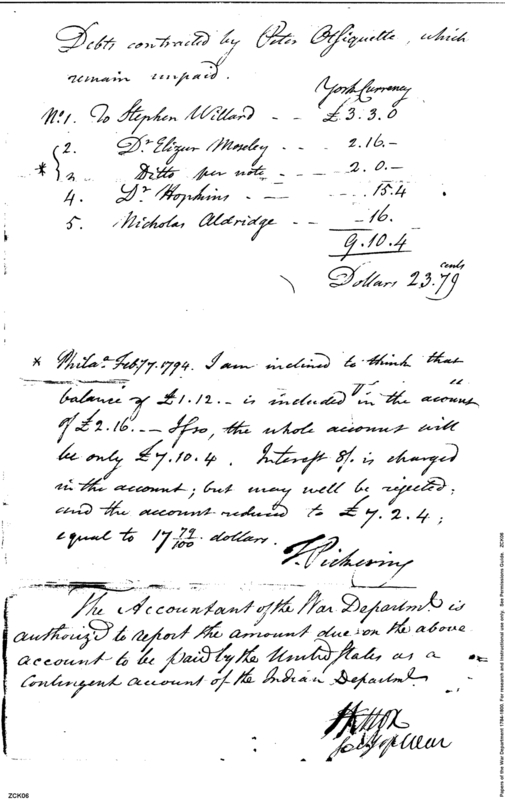 Debts contracted by Peter Otsiquette, which
remain unpaid.
York Currency
No. 1. To Stephen Willard - - £3.3.0
2. Dr Elizur Moseley - - - 2.16.-
* 3. Ditto per note - - - 2.0.-
4. Dr Hopkins - - - 15.4
5. Nicholas Aldridge - - - 16.
9.10.4
cents
Dollars 23.79
* Philaa Feby 7. 1794. I am inclined to think that
balance of £1.12.- is included in the account
of £2.16.- - If so, the whole account will
be only £7.10.4. Interest 8/. is charged
in the account; but may well be rejected;
and the account reduced to £7.2.4;
equal to 17 79/100 dollars.
T. Pickering
The Accountant of the War Departmt is
authoriz'd to report the amount due on the above
account to be paid by the United States as a
Contingent account of the Indian Departmt
H Knox
Secy of War
ZCK06
Papers of the War Department 1784-1800. For research and instructional use only. See Permissions Guide. ZCK06